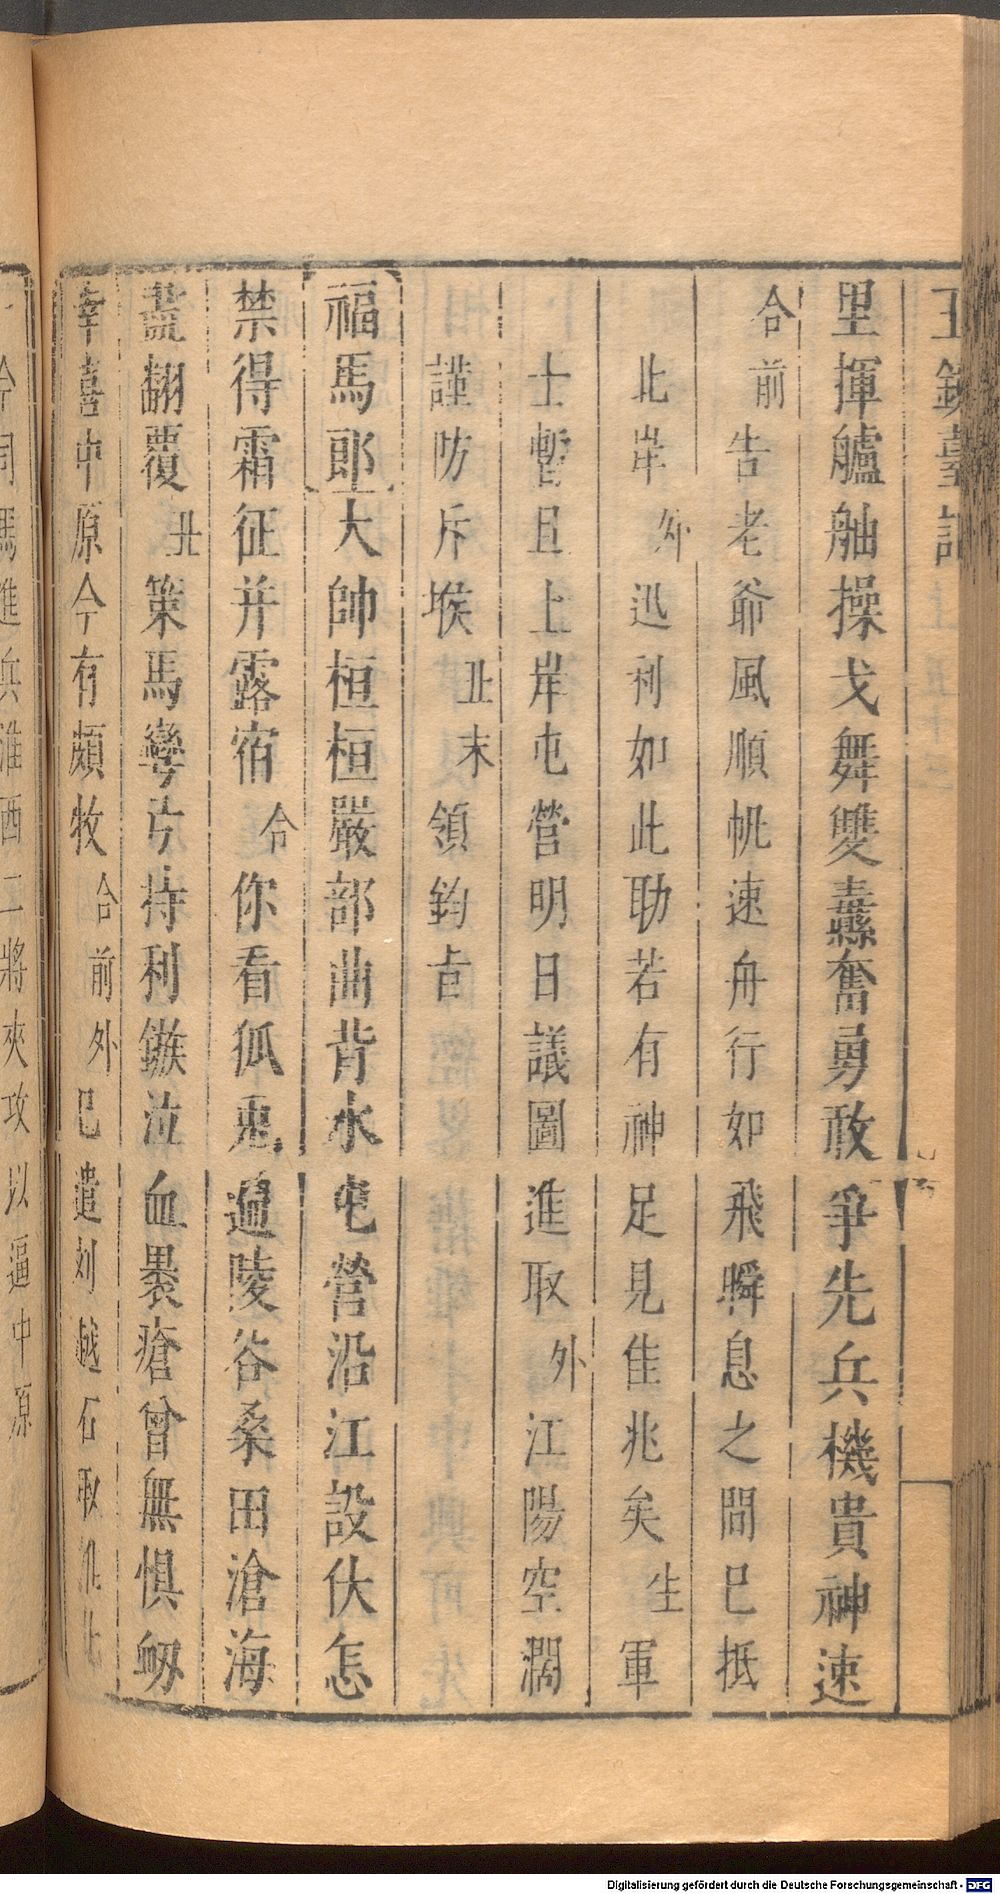 玉鏡臺記
里揮艫舳操戈舞雙纛奮勇敢爭先兵機貴神速
合前告老爺風順帆速舟行如飛瞬息之間已抵
北岸外迅利如此助若有神足見佳兆矣生軍
士暫且上岸屯營明日議圖進取外江陽空濶
謹防斥堠丑末領鈞旨
福馬郎大帥桓桓嚴部曲背水屯營沿江設伏怎
禁得霜征并露宿合你看狐兎過陵谷桑田滄海
盡翻覆丑策馬彎片持利鏃泣血裹瘡曾無惧衂
幸喜中原今有頗牧合前外已遣刘越石取淮北
令司馬進兵淮西二將夾攻以逼中原
Digitalisierung gefördert durch die Deutsche Forschungsgemeinschaft - DFG